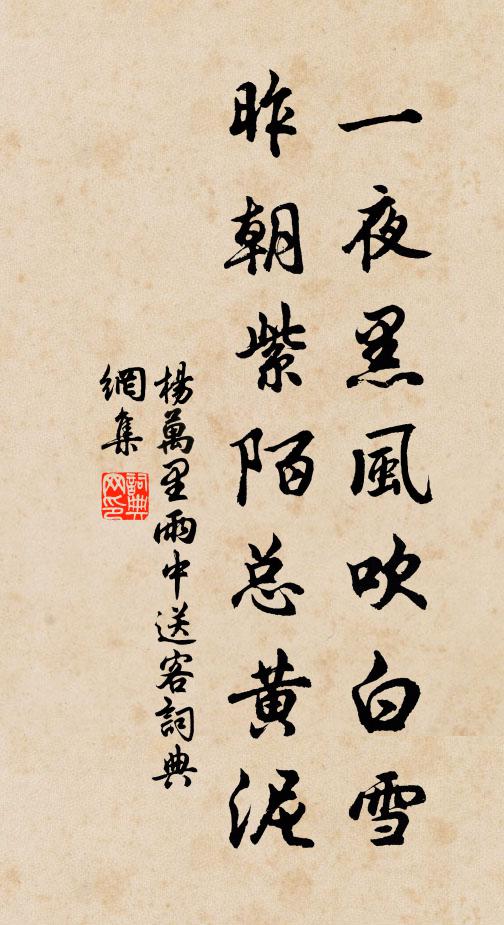 一夜黑風吹白雪
昨朝紫陌总黄泥
楊萬里雨中送客詞典
網集
詞典
网印